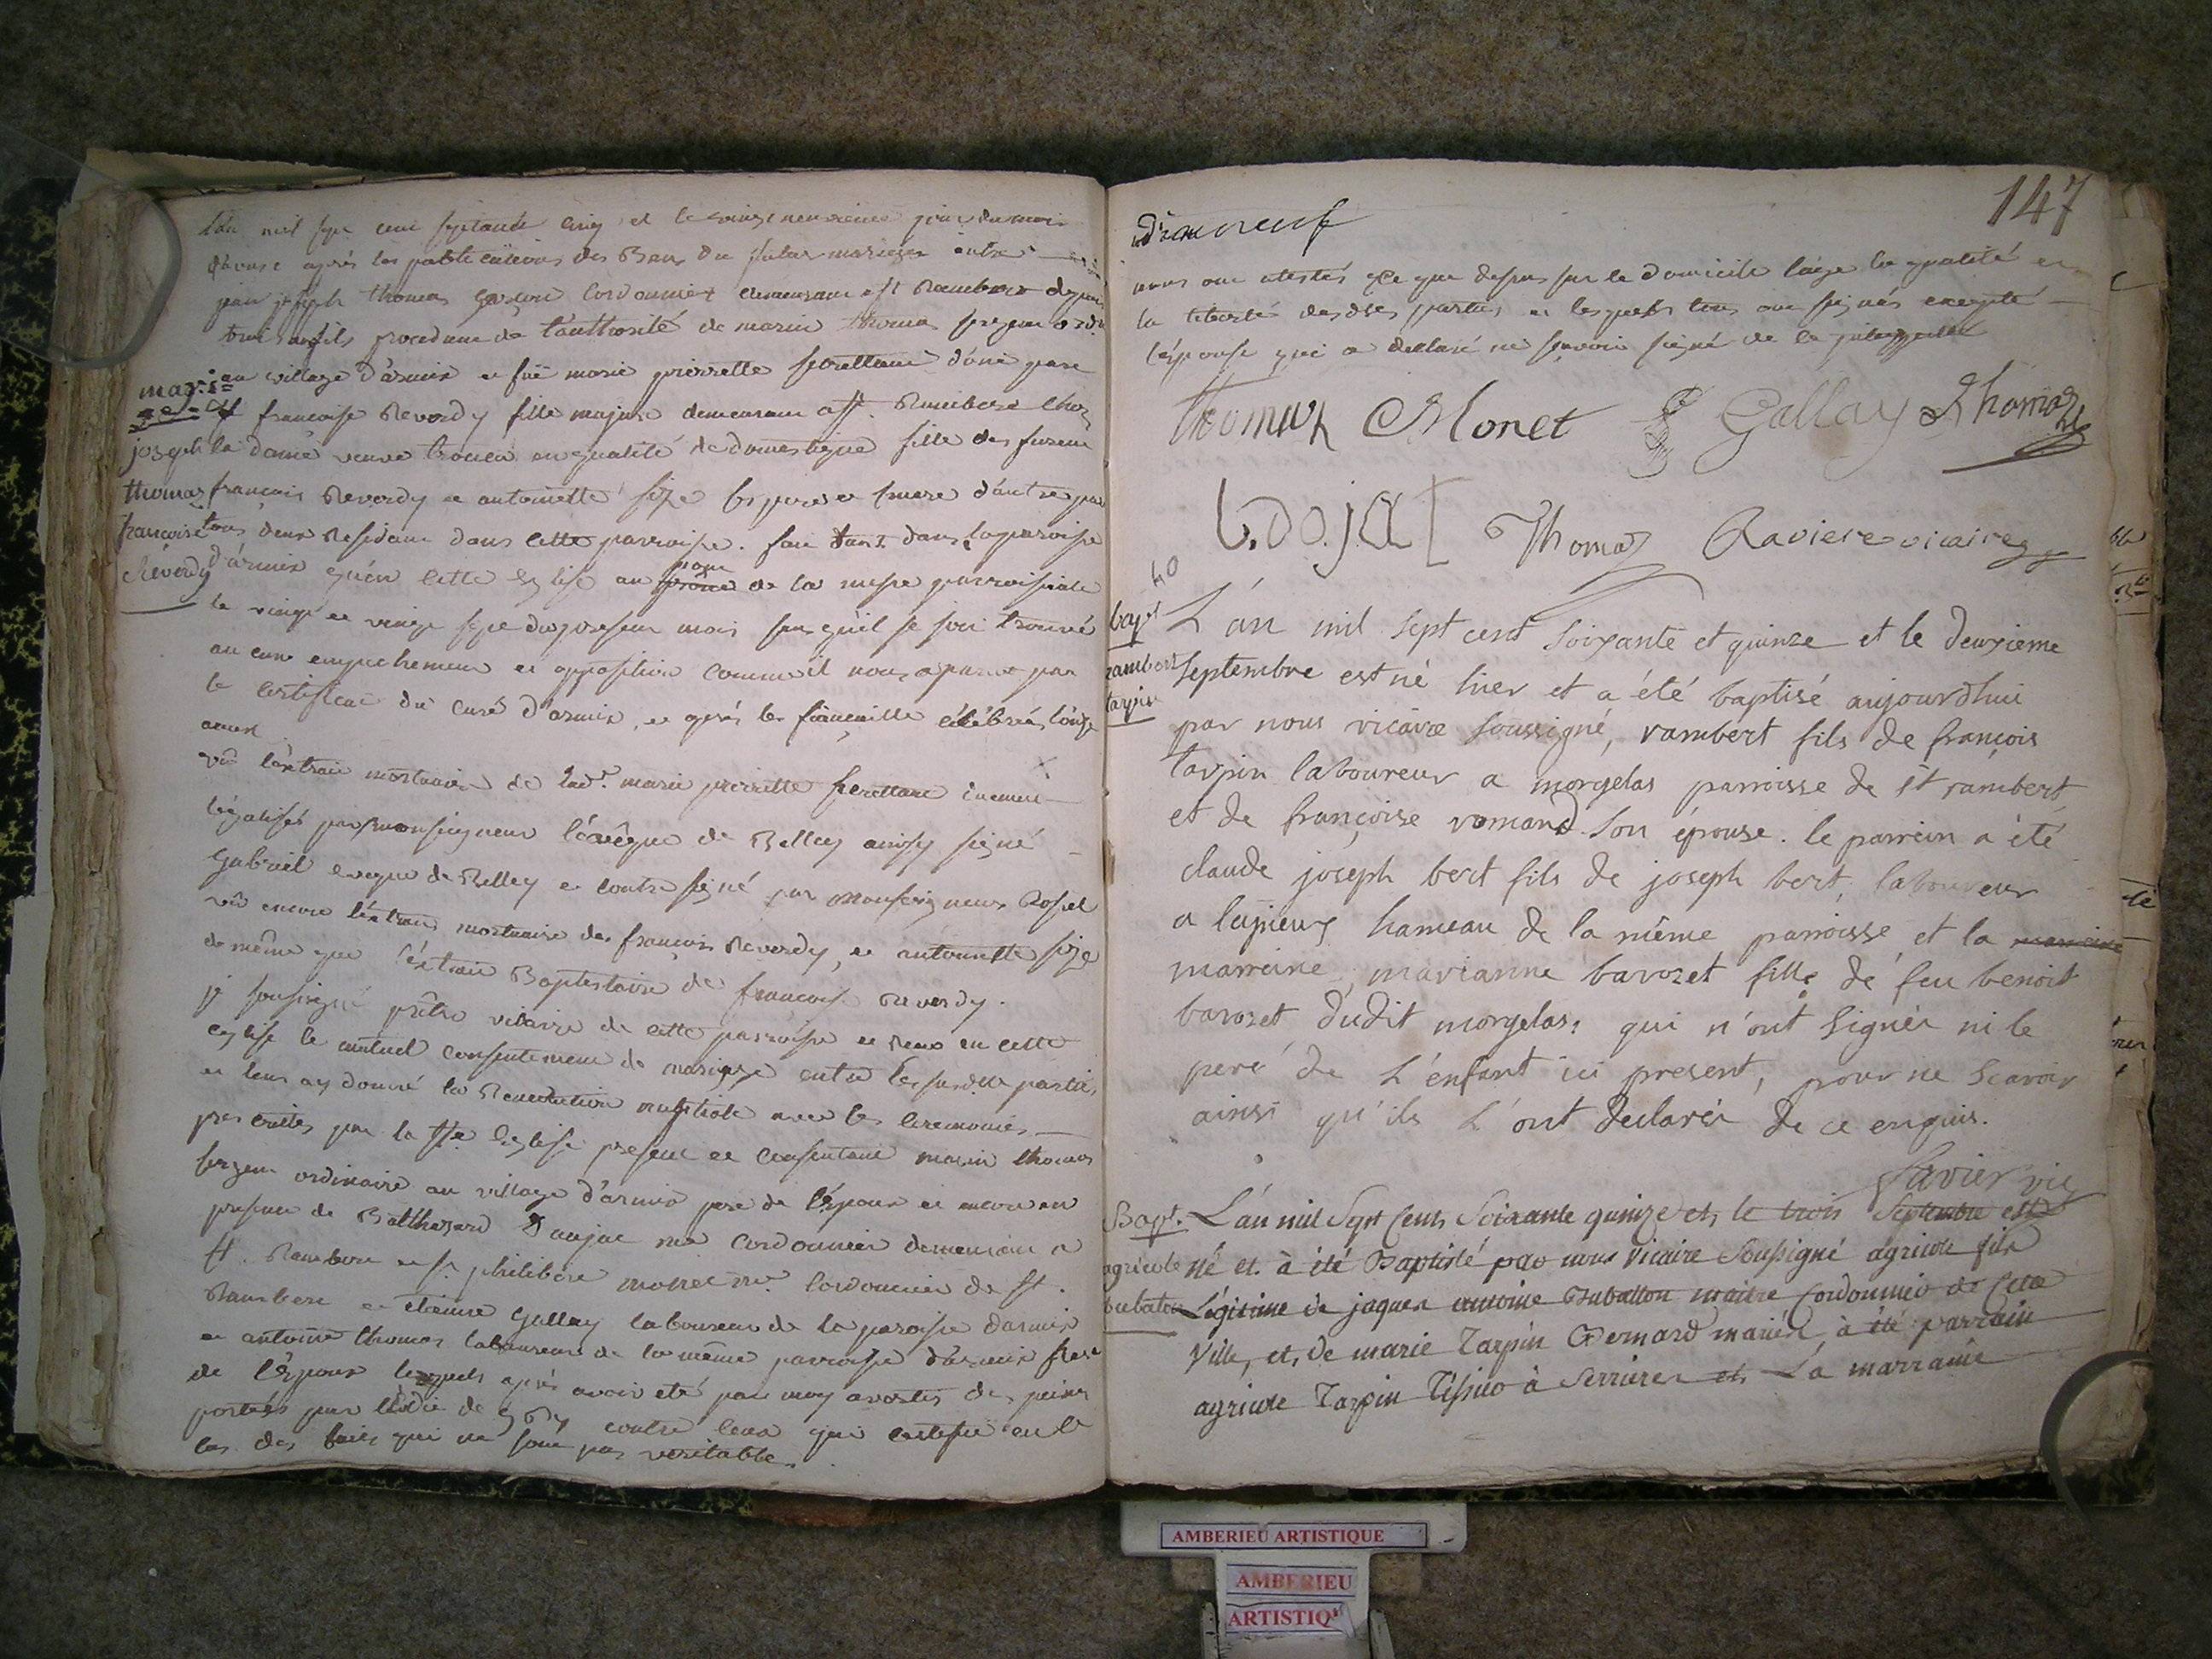 L'an mil sept cent septante cinq et le vingt neuvieme jour du mois
d'aoust après les publications des Bans du futur mariage entre
jean joseph thomas garçon Cordonnier demeurant a st Rambert depuis
fils procedant de l'authorité de marin thomas sergent ordre
au village d'armix et fuë marie pierrette d'une part
et françoise Reverdy fille majure demeurant a st. Rambert chez
la dame veuve en qualité de domestique fille des furent
françois Reverdy et antoinette size ses pere et mere d'autre part
tous deux Residant dans cette parroisse. fait tant dans la paroisse
d'armix qu'en cette Eglise au prône de la messe parroissiale
le vingt et vingt sept du present mois sans qu'il se soit trouvé
aucune empechement et opposition comme il nous a paru par
le certificat du curé d'armix, et après les fiançaille célébrées
vû l'extrait mortuaire de lad.e marie pierrette
légalisés par monseigneur l'évêque de Belley ainsy signé
Gabriel eveque de Belley et contre signé par monseigneur Rosset
vû encore l'extrait mortuaire des françois Reverdy, et antoinette size
de même que l'extrait Baptistaire de françoise Reverdy.
je soussigné prêtre vicaire de cette parroisse ai Recu en cette
eglise le mutuel consentement de mariage entre les susdite partie,
et leur ay donné la Benediction nuptiale avec les ceremonies
prescrites par la ste Eglise present et consentant marin thomas
sergent ordinaire au village d'armix pere de l'époux et encore en
presence de Balthezard me cordonnier demeurant a
st. Rambert et sr. philibert monet me. Cordonnier de st.
Rambert et etienne Gallay laboureur de la paroisse d'armix
et antoine thomas laboureur de la même parroisse d'armix frere
de l'époux lesquels après avoir eté par moy avertis des peines
portées par l'édit de contre ceux qui certifie en le
cas des faits qui ne sont pas veritable.
mari=
age
joseph
thomas
francoise
Reverdy
147
nous ont atestés ce que dessus sur le domicile l'âge la qualité et
la liberté desdtes parties et lesquels tous ont signés excepté
l'épouse qui a declaré ne sçavoir signé de ce
thomas Monet Gallay Thomas
bojat Thomas Raviere vicaire
40
bapt
rambert
tarpin
L'an mil sept cent soixante et quinze et le deuxieme
septembre est né hier et a été baptisé aujourdhui
par nous vicaire soussigné, rambert fils de françois
tarpin laboureur a morgelas parroisse de st rambert
et de françoise romand son épouse. le parrein a été
claude joseph bert fils de joseph bert, laboureur
a hameau de la même parroisse et la marreine
marreine, marianne barozet fille de feu benoit
barozet dudit morgelas; qui n'ont signés ni le
peré de L'enfant ici present, pour ne Scavoir
ainsi qu'ils L'ont declarés de ce enquis.
Ravier vic
Bapt.
agricole
L'an mil Sept Cents Soixante quinze et, le trois Septembre est
né et à été Baptisté par nous Vicaire Soussigné agricole fils
Légitime de jaques antoine maitre Cordonnier de Cette
Ville, et, de marie Tarpin Bernard mariés, à été parrain
agricole Tarpin Tissier à Serrieres et, La marraine
AMBERIEU ARTISTIQUE
AMBERIEU
ARTISTIQ